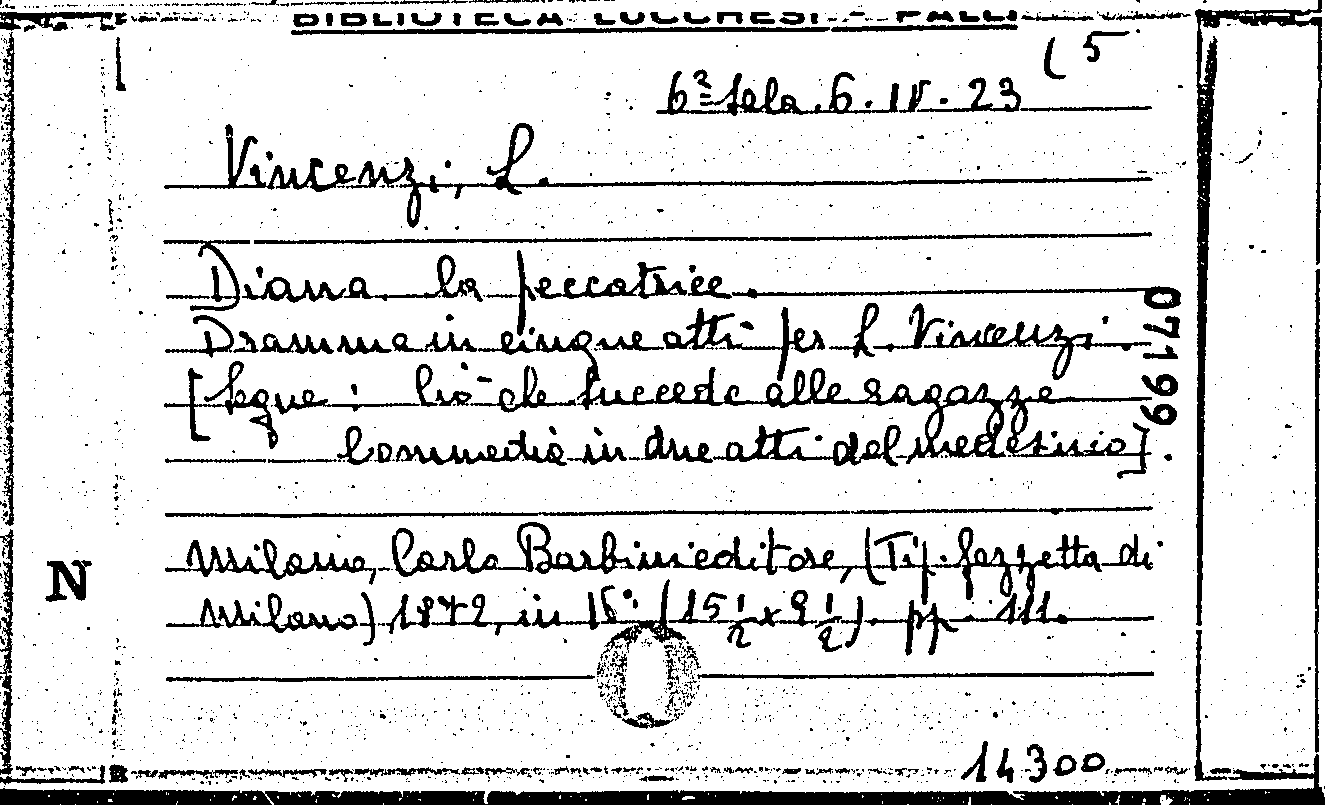 BIBLIOTECA LUCCHESI - PALLI
(5
6ª Sala. 6. IV. 23
Vincenzi, L.
Diana la peccatrice.
Dramma in cinque atti per L. Vincenzi.
[Segue: Ciò che succede alle ragazze
Commedia in due atti del medesimo].
07199
N
Milano, Carlo Barbini editore, (Tip. Gazzetta di
Milano), 1872, in 16° (15 1/2 x 9 1/2). pp. 111.
14300